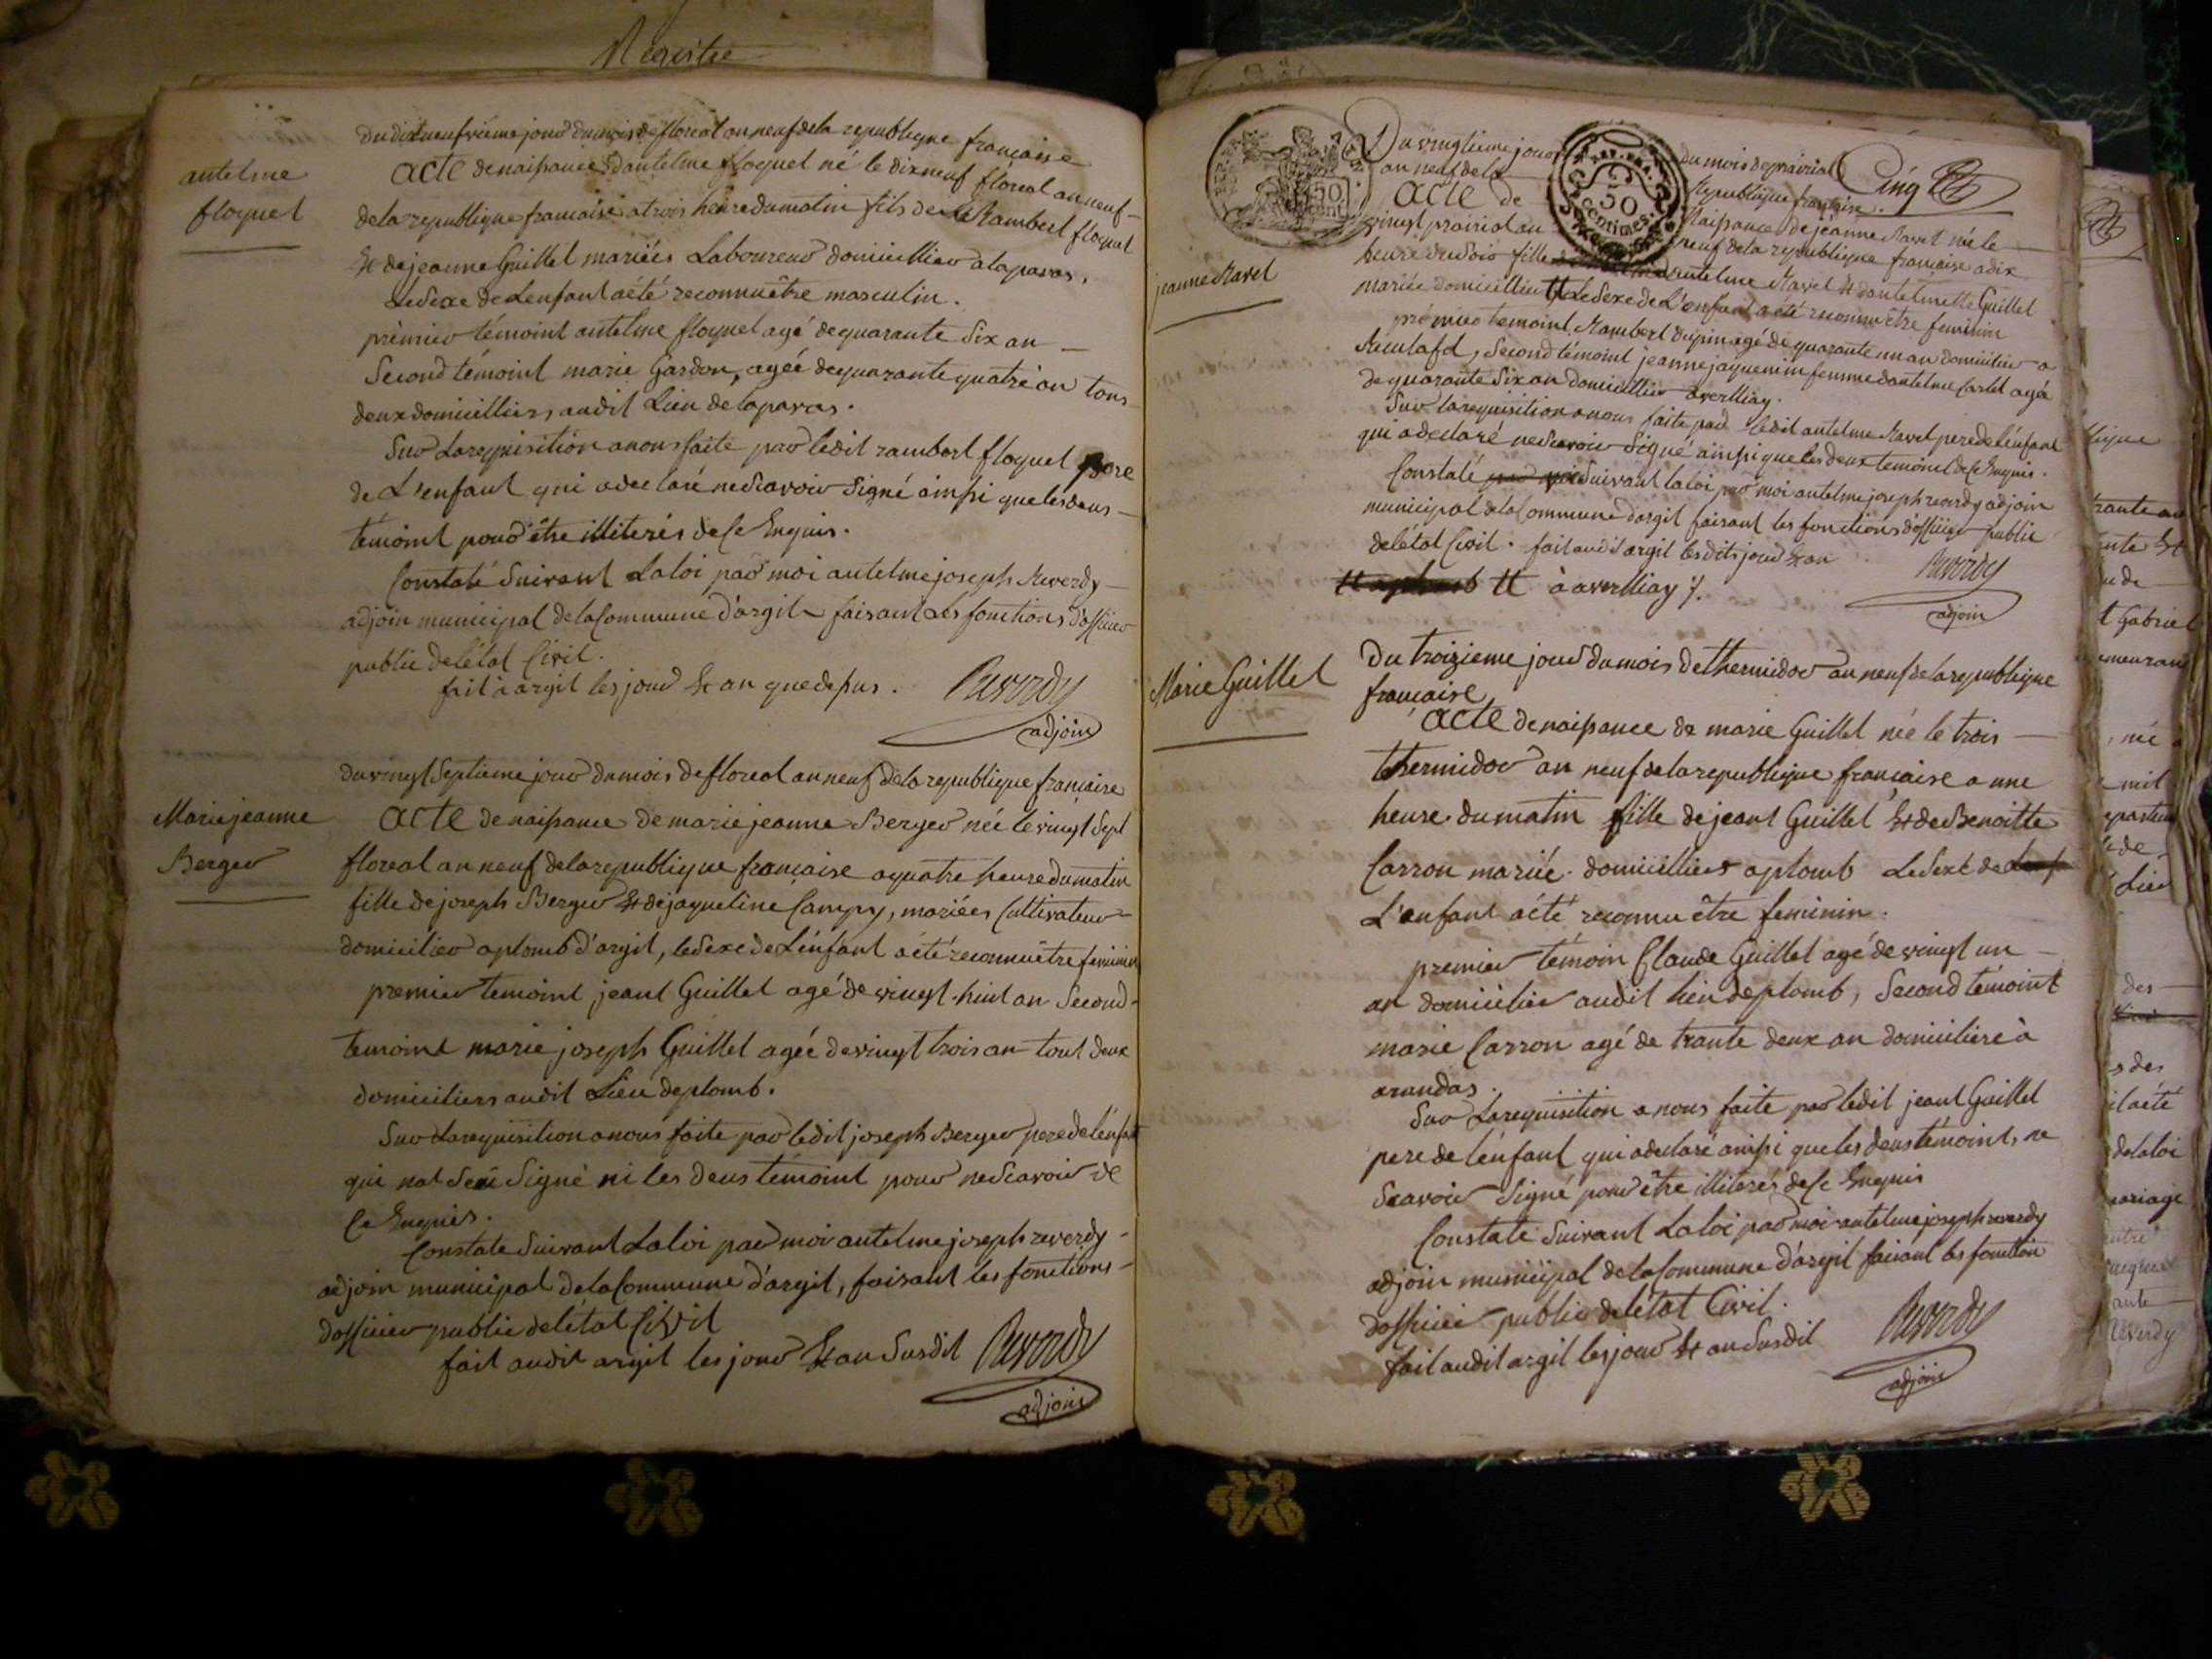 Registre
antelme
floquet
du dixneufvieme jour du mois de floreal an neuf de la republique française
acte de naissance dantelme floquet né le dixneuf floreal an neuf
de la republique francaise a trois heure du matin fils de Rambert floquet
et de jeanne Guillet mariés Laboureur domicillier a laparas.
Le Sexe de Lenfant aété reconnu être masculin.
premier témoint antelme floquet agé de quarante Six an
Second témoint marie Gardon, agéé de quarante quatre an tous
deux domicilliers audit Lieu de laparas.
Sur La requisition a nous faite par ledit rambert floquet pere
de L'enfant qui a declaré ne Scavoir Signé ainssi que les deus
témoint pour être illiterés de ce Enquis.
Constaté Suivant La loi par moi antelme joseph Reverdy
adjoin municipal de la Commune d'argil faisant Les fonctions d'officier
public de létat Civil.
fait à argil les jour et an que dessus.
Reverdy
adjoin
Marie jeanne
Berger
du vingt Septieme jour du mois de floreal an neuf de la republique francaise
acte de naissance de marie jeanne Berger née le vingt Sept
floreal an neuf de la republique francaise a quatre heure du matin
fille de joseph Berger et de jaqueline Campy, mariées Cultivateur
domicilier a plomb d'argil, le Sexe de L'énfant a été reconnu être feminin
premier temoint jeant Guillet agé de vingt huit an Second
temoint marie joseph Guillet agée de vingt trois an tout deux
domiciliers audit Lieu de plomb.
Sur La requisition a nous faite par ledit joseph Berger pere de lénfant
qui nat Signé ni les deus témoint pour ne Scavoir de
Ce Enquis.
Constate Suivant La loi par moi antelme joseph reverdy
adjoin municipal de la Commune d'argil, faisant les fonctions
dofficier public de létat Civil
fait audit argil les jour et an Susdit
Reverdy
adjoin
Cinq
50 cent
50 centimes
Du vingtieme jour du mois de prairial
an neuf de la Republique française.
jeanne Ravet
acte de Naissance de jéanne Ravet née le
vingt prairial an neuf de la republique francaise a dix
heure du Soir fille dantelme Ravet et dantelmette Guillet
mariée domicillier Le Sexe de L'enfant a été reconnu être feminin
premier temoint Rambert dupin agé de quarante un an domicilier a
Second témoint jeanne jaquemin femme dantelme Castel agé
de quarante Six an domicillier averlliay.
Sur la requisition a nous faite par ledit antelme Ravet pere de lénfant
qui a declaré ne Scavoir Signé ainssi que les deux temoint de ce Enquis.
Constaté Suivant la loi par moi antelme joseph reverdy adjoin
municipal de la Commune dargil faisant les fonctions d'officier public
de létat Civil. fait audit argil lesdits jour et an
à averlliay
Reverdy
adjoin
Marie Guillet
Du troizieme jour du mois de thermidor an neuf de la republique
française
acte de naissance de marie Guillet née le trois
thermidor an neuf de la republique française a une
heure du matin fille de jeant Guillet et de Benoitte
Carron mariée domicilliers a plomb Le Sexe de
L'enfant a été reconnu être feminin.
premier témoin Claude Guillet agé de vingt un
an domicilier audit lieu de plomb, Second témoint
marie Carron agé de trante deux an domiciliere à
arandas.
Sur La requisition a nous faite par ledit jeant Guillet
pere de lénfant qui a declaré ainssi que les deus témoint, ne
Scavoir Signé pour être illiterés de ce Enquis
Constate Suivant La loi par moi antelme joseph reverdy
adjoin municipal de la Commune d'argil faisant les fonction
dofficier public de létat Civil.
fait audit argil les jour et an Susdit
Reverdy
adjoin